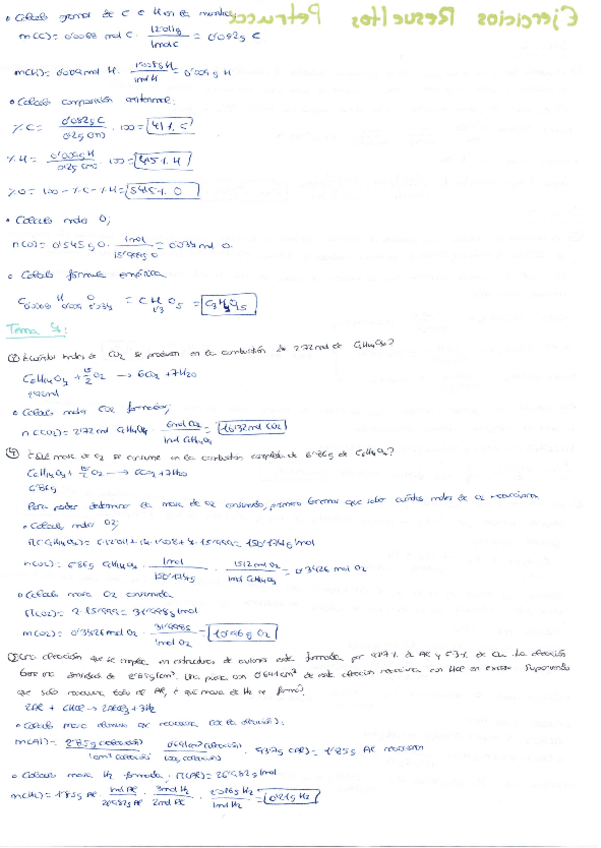 Ejercicios Resueltos Petrucci
• Calculo gramos de C e H en la muestra;
m(C)= 0'0068 mol C · 12'011g / 1mol C = 0'082g C
m(H)= 0'009 mol H · 1'008g H / 1mol H = 0'009 g H
• Calculo composición centesimal:
% C = 0'082g C / 0'2g · 100 = 41% C
% H = 0'009g H / 0'2g · 100 = 4'5% H
% O = 100 - % C - % H = 54'5% O
• Calculo moles O;
n(O)= 0'545g O · 1mol / 15'999g O = 0'034 mol O
• Calculo fórmula empírica
C0'0068 H0'009 O0'034 = C H O5 = C3H4O15
Tema 4:
¿Cuántos moles de CO2 se producen en la combustión de 2'72 mol de C6H14O4?
C6H14O4 + 15/2 O2 → 6CO2 + 7H2O
2'72mol
• Calculo moles CO2 formados;
n(CO2)= 2'72 mol C6H14O4 · 6mol CO2 / 1mol C6H14O4 = 16'32 mol CO2
¿Qué masa de O2 se consume en la combustión completa de 6'86g de C6H14O4?
C6H14O4 + 15/2 O2 → 6CO2 + 7H2O
6'86g
Para poder determinar la masa de O2 consumido, primero tenemos que saber cuántos moles de O2 reaccionan
• Calculo moles O2;
M(C6H14O4)= 6·12'011 + 14·1'008 + 4·15'999 = 150'174g/mol
n(O2)= 6'86g C6H14O4 · 1mol / 150'174g · 15/2 mol O2 / 1mol C6H14O4 = 0'3426 mol O2
• Calculo masa O2 consumida
M(O2)= 2·15'999 = 31'998g/mol
m(O2)= 0'3426 mol O2 · 31'998g / 1mol O2 = 10'96 g O2
Una aleación que se emplea en estructuras de aviones está formada por 93'7% de Al y 6'3% de Cu. La aleación
tiene una densidad de 2'85g/cm³. Una pieza con 0'691cm³ de esta aleación reacciona con HCl en exceso. Suponiendo
que sólo reacciona todo el Al, ¿qué masa de H2 se formó?
2Al + 6HCl → 2AlCl3 + 3H2
• Calculo masa aluminio que reacciona
m(Al)= 2'85g (aleación) / 1cm³ (aleación) · 0'691cm³ (aleación) / 100g (aleación) · 93'7g (Al) = 1'85g Al reaccionan
• Calculo masa H2 formada; M(Al)= 26'982g/mol
m(H2)= 1'85g Al · 1mol Al / 26'982g Al · 3mol H2 / 2mol Al · 2'016g H2 / 1mol H2 = 0'21g H2